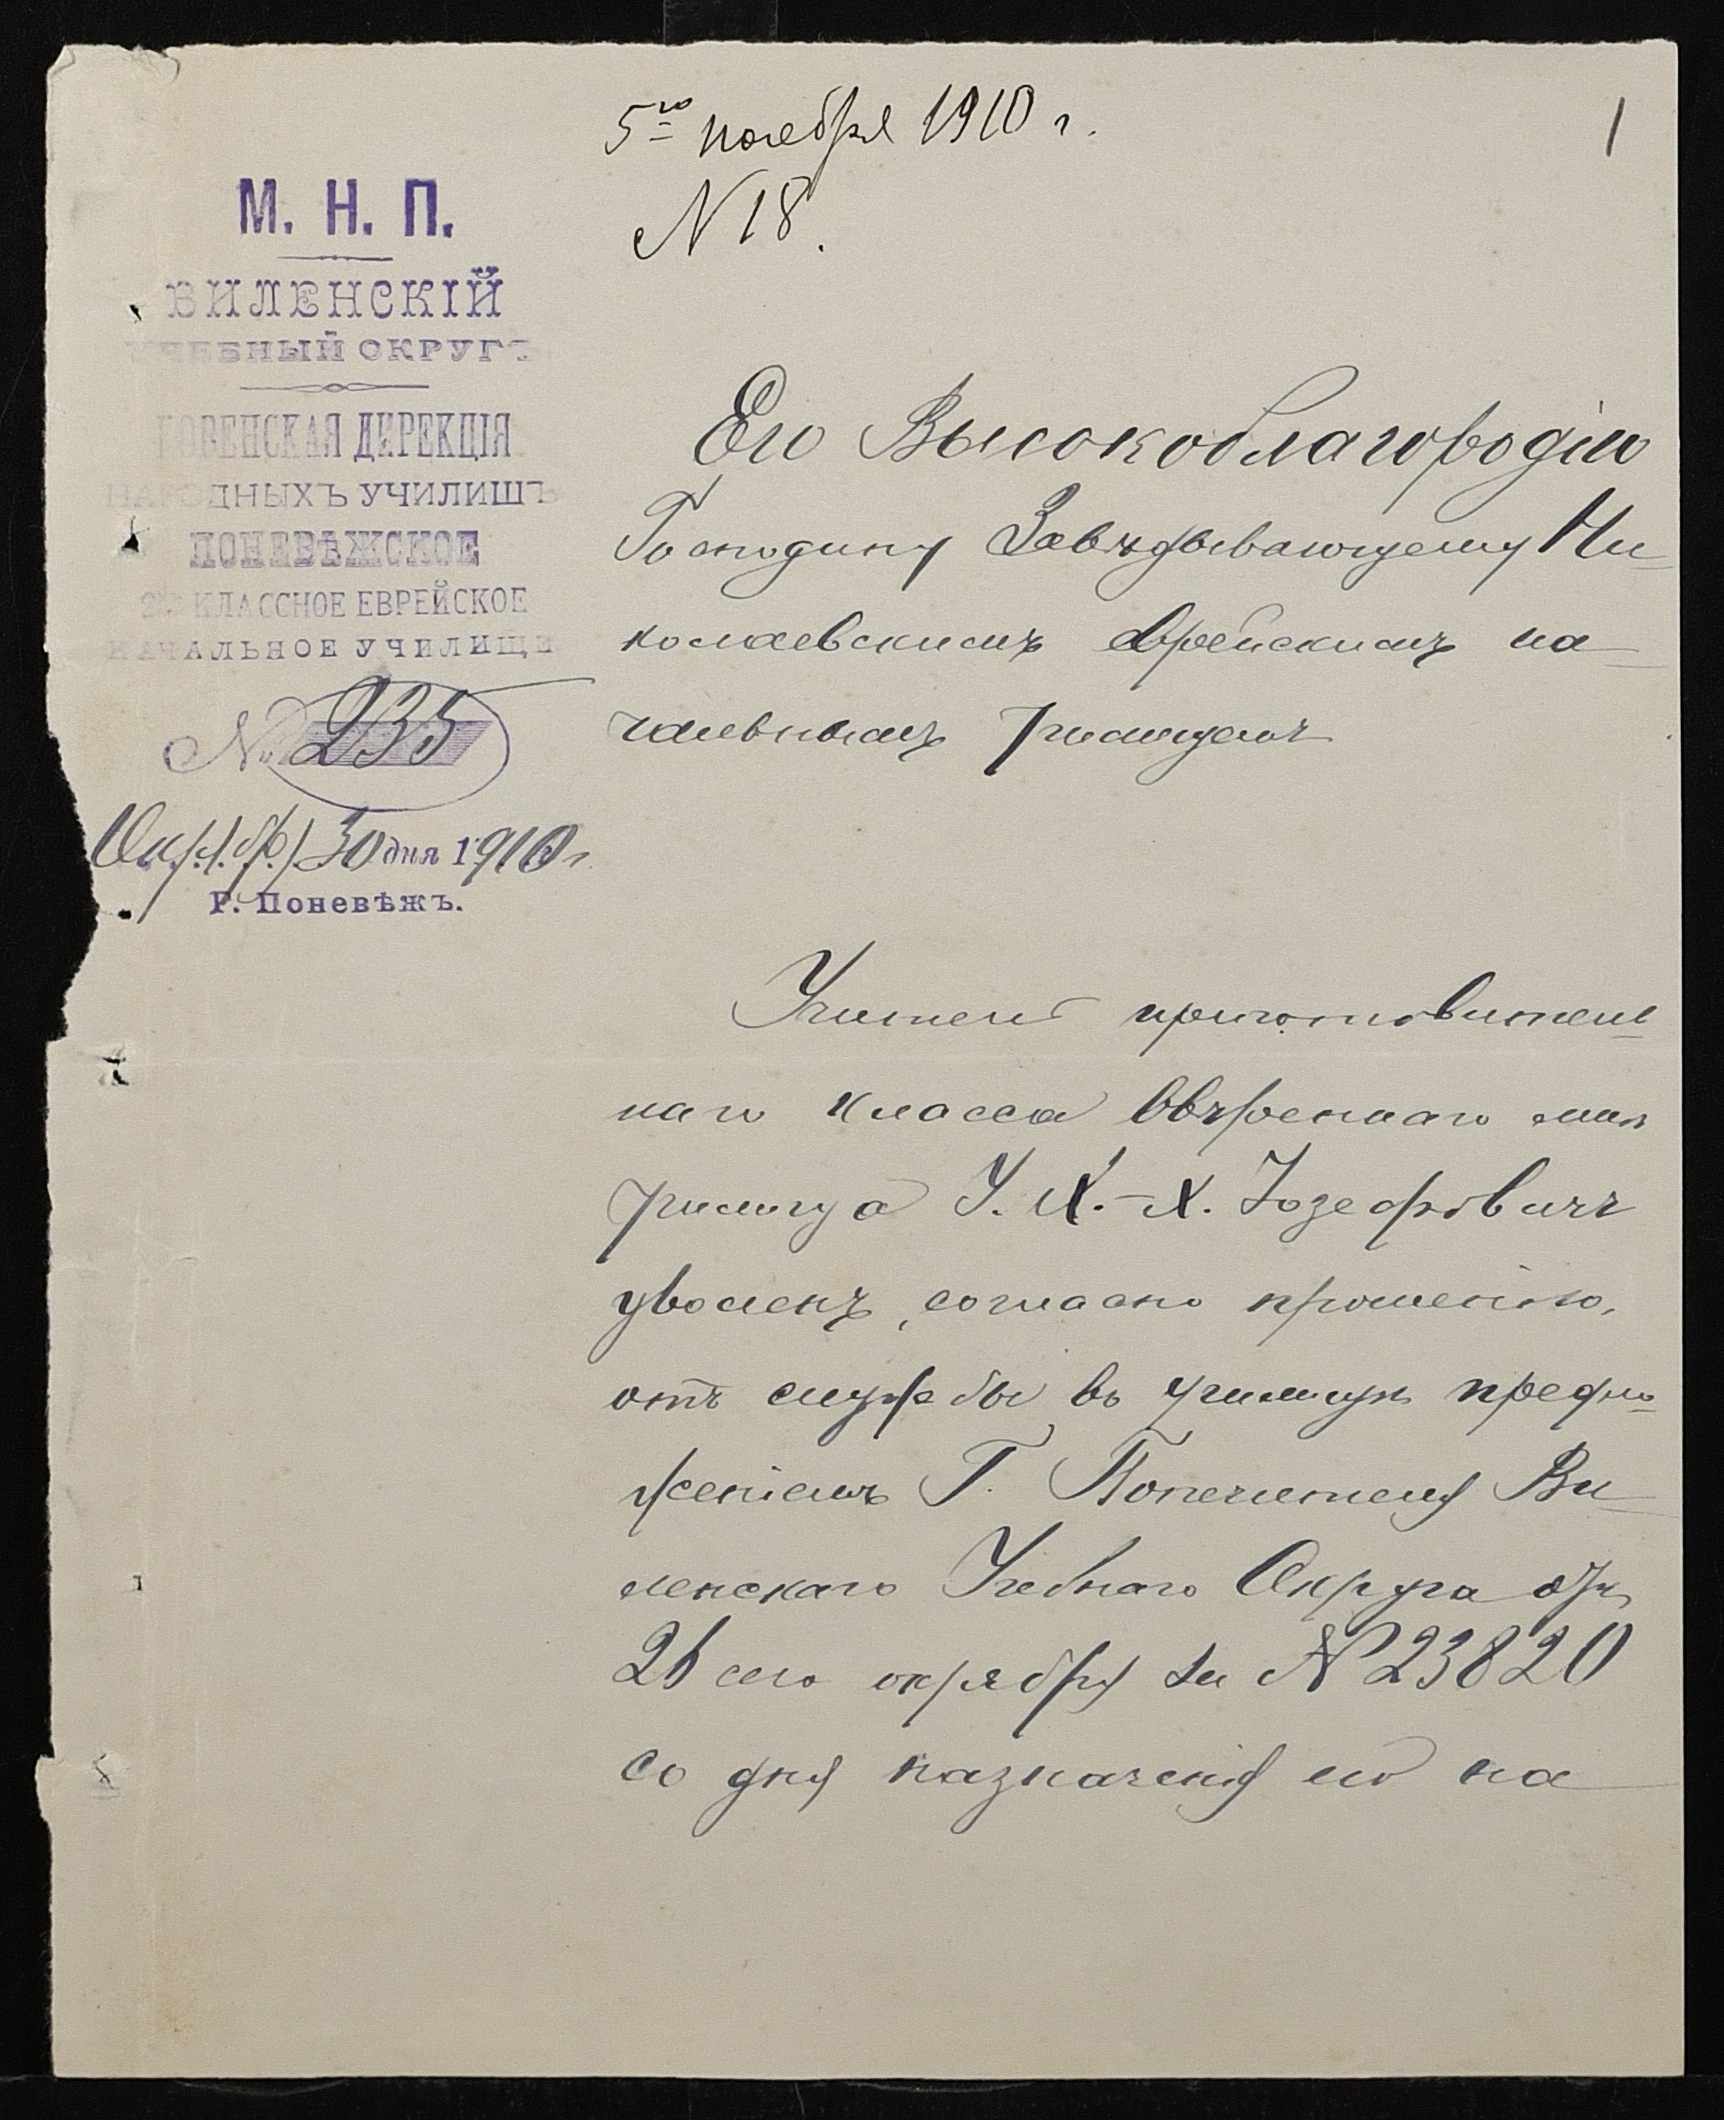 5го ноября 1910 г.
1
N 18.
М. Н. П.
ВИЛЕНСКІЙ
УЧЕБНЫЙ ОКРУГЪ
КОВЕНСКАЯ ДИРЕКЦІЯ
НАРОДНЫХЪ УЧИЛИЩЪ
ПОНЕВѢЖСКОЕ
2хъ КЛАССНОЕ ЕВРЕЙСКОЕ
НАЧАЛЬНОЕ УЧИЛИЩЕ
№ 235
Октября 30 дня 1910 г.
Г. Поневѣжъ.
Его Высокоблагородію
Господину Завѣдывающему Ни-
колаевскимъ еврейскимъ на-
чальнымъ училищемъ
Учитель приготовитель-
наго класса ввѣреннаго мнѣ
училища І. Х.-Х. Іозефовичъ
уволенъ, согласно прошенію,
отъ службы въ училищѣ предло-
женіемъ Г. Попечителя Ви-
ленскаго Учебнаго Округа отъ
26 сего октября за № 23820
со дня назначенія его на